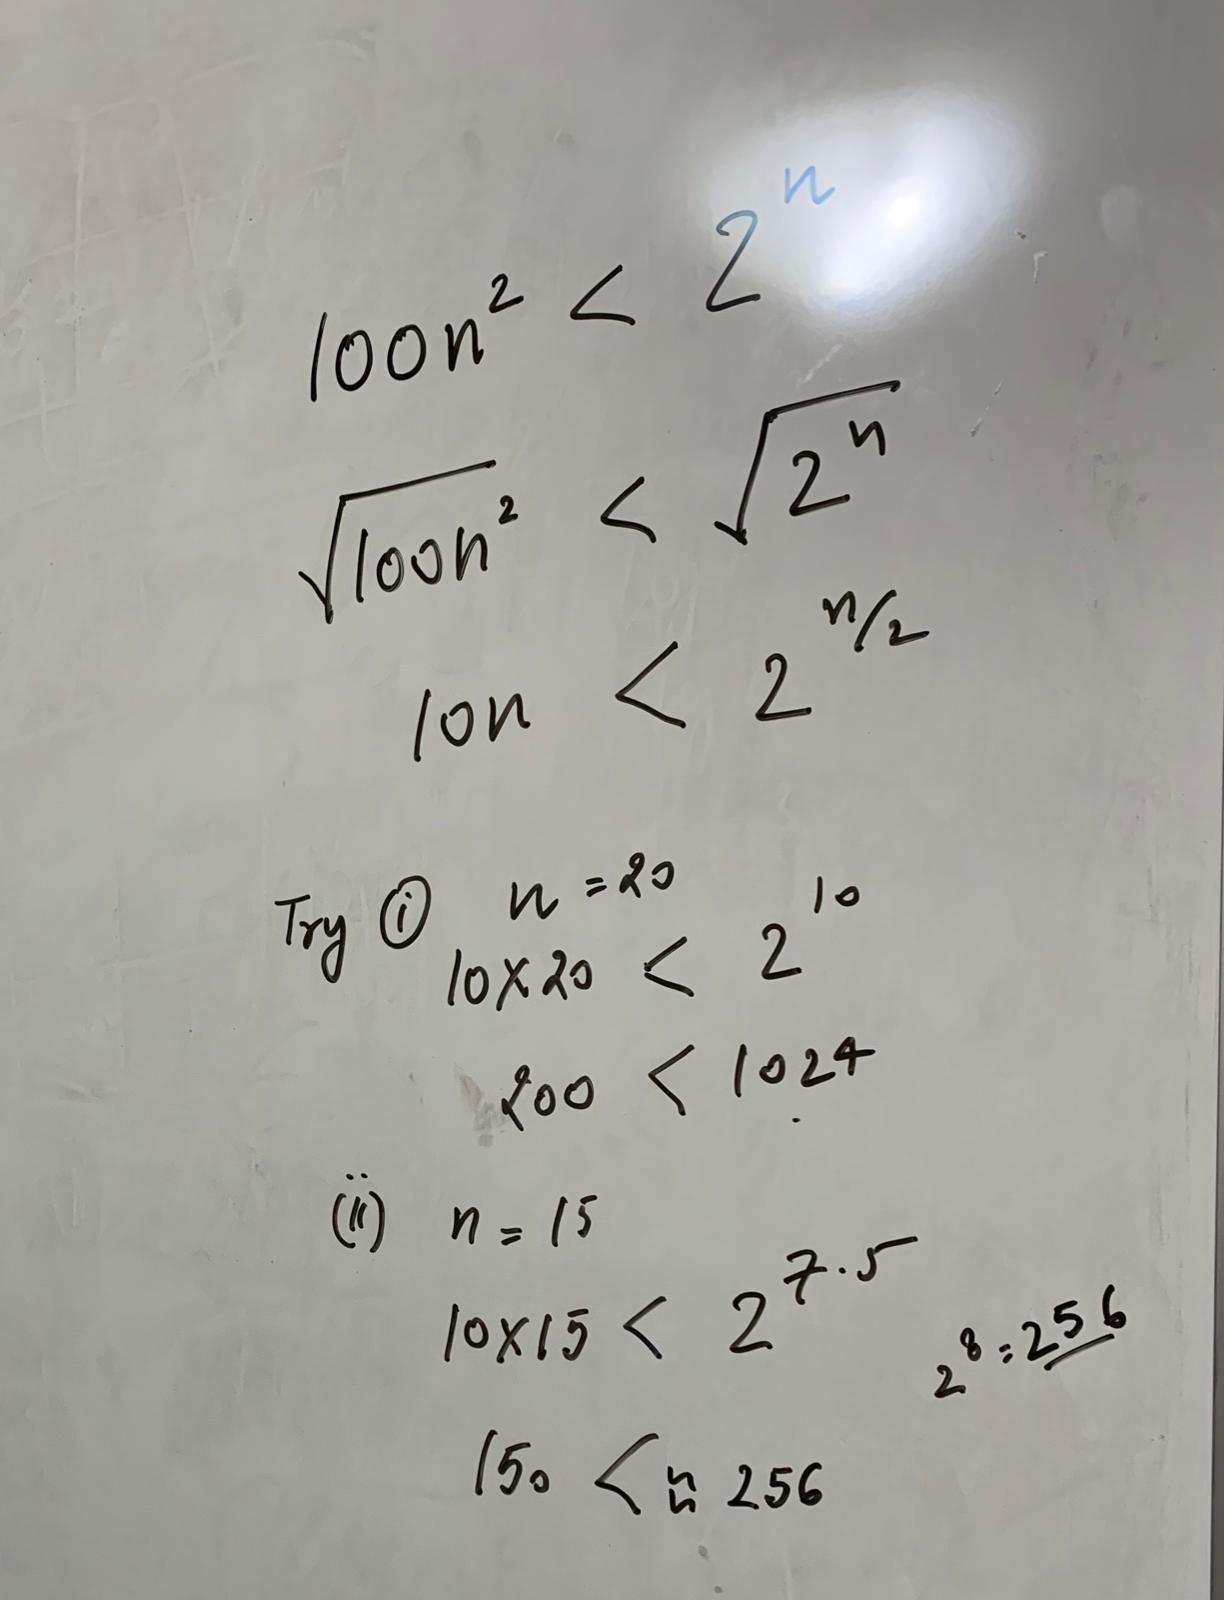 100n² < 2ⁿ
√100n² < √2ⁿ
10n < 2^n/2
Try ⓘ n = 20
10×20 < 2¹⁰
200 < 1024
(ii) n = 15
10×15 < 2^7.5
2⁸ = 256
150 < ≈ 256